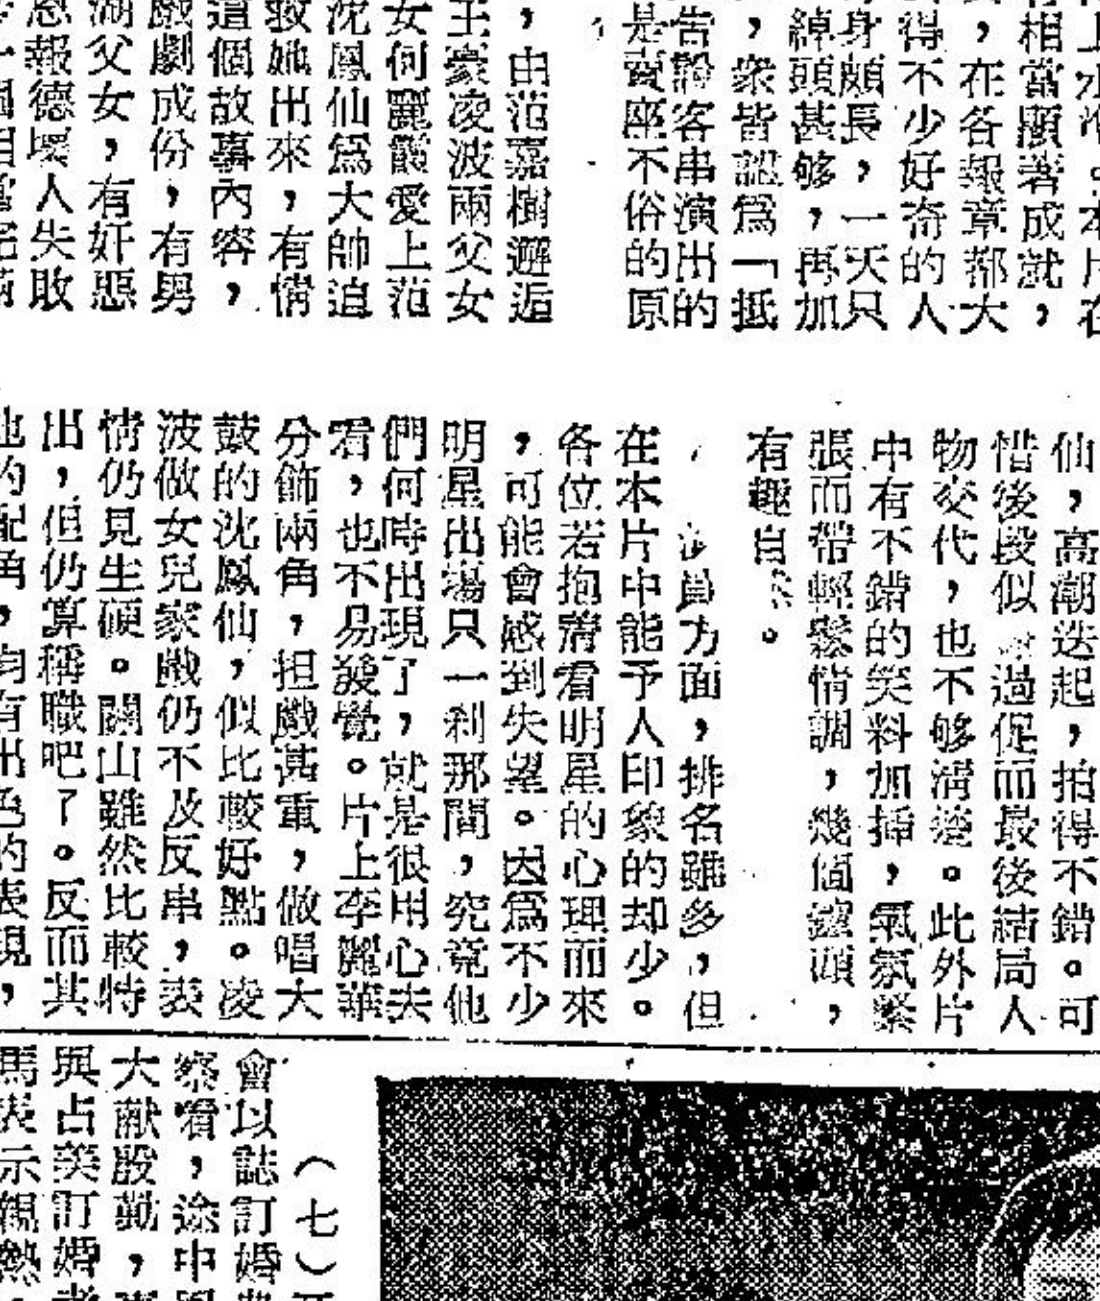 相當顯著成就，
，在各報章都大
得不少好奇的人
身頗長，一天只
綽頭甚够，再加
，衆皆認爲「抵
告說客串演出的
是賣座不俗的原
，由范嘉樹邂逅
王豪凌波兩父女
女何麗霞愛上范
沈鳳仙爲大帥迫
救她出來，有情
這個故事內容，
戲劇成份，有男
湖父女，有奸惡
恩報德壞人失敗
仙，高潮迭起，拍得不錯。可
惜後段似過促而最後結局人
物交代，也不够清楚。此外片
中有不錯的笑料加插，氣氛緊
張而帶輕鬆情調，幾個鏡頭，
有趣自。
員方面，排名雖多，但
在本片中能予人印象的却少。
各位若抱着看明星的心理而來
，可能會感到失望。因爲不少
明星出場只一刹那間，究竟他
們何時出現了，就是很用心去
看，也不易發覺。片上李麗華
分飾兩角，担戲甚重，做唱大
鼓的沈鳳仙，似比較好點。凌
波做女兒家戲仍不及反串，表
情仍見生硬。關山雖然比較特
出，但仍算稱職吧了。反而其
他的配角，均有出色的表現，
（七）
會以誌訂婚
察看，途中
大献殷勤，
與占美訂婚
馬表示親熱